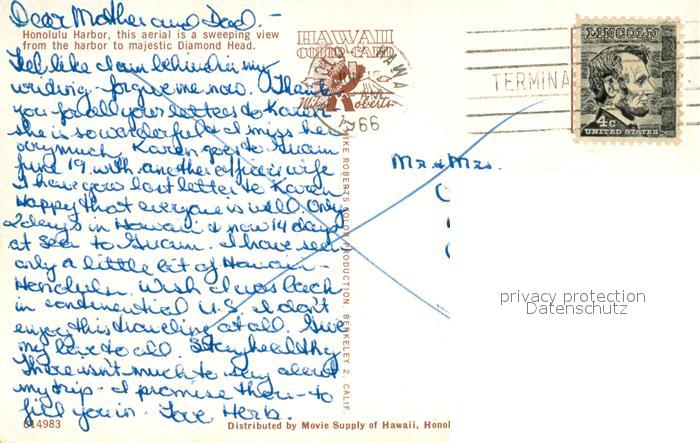 Dear Mother and Dad -
Honolulu Harbor, this aerial is a sweeping view
from the harbor to majestic Diamond Head.
Feel like I am behind in my
writing - forgive me now. Thank
you for all your letters to Karen -
she is so wonderful and I miss her
very much. Karen goes to Guam
June 19 with another officer's wife
I have your last letter to Karen
Happy that everyone is well. Only
2 days in Hawaii & now 14 days
at sea to Guam. I have seen
only a little bit of Hawaii -
Honolulu. Wish I was back
in continential U.S. I don't
enjoy this traveling at all. Give
my love to all. Stay healthy
There isn't much to say about
my trip - I promise then - to
fill you in. Love Herb.
C14983
Distributed by Movie Supply of Hawaii, Honol
HAWAII
COLOR CARD
Mike Roberts
MIKE ROBERTS COLOR PRODUCTION, BERKELEY 2, CALIF.
HAWAII
AM
1966
TERMINA
LINCOLN
4c
UNITED STATES
Mr. & Mrs.
privacy protection
Datenschutz